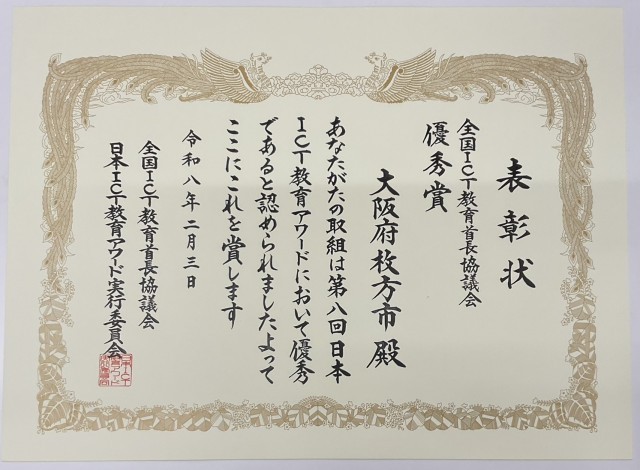 表彰状
全国ICT教育首長協議会
優秀賞
大阪府枚方市殿
あなたがたの取組は第八回日本
ICT教育アワードにおいて優秀
であると認められましたよって
ここにこれを賞します
令和八年二月三日
全国ICT教育首長協議会
日本ICT教育アワード実行委員会